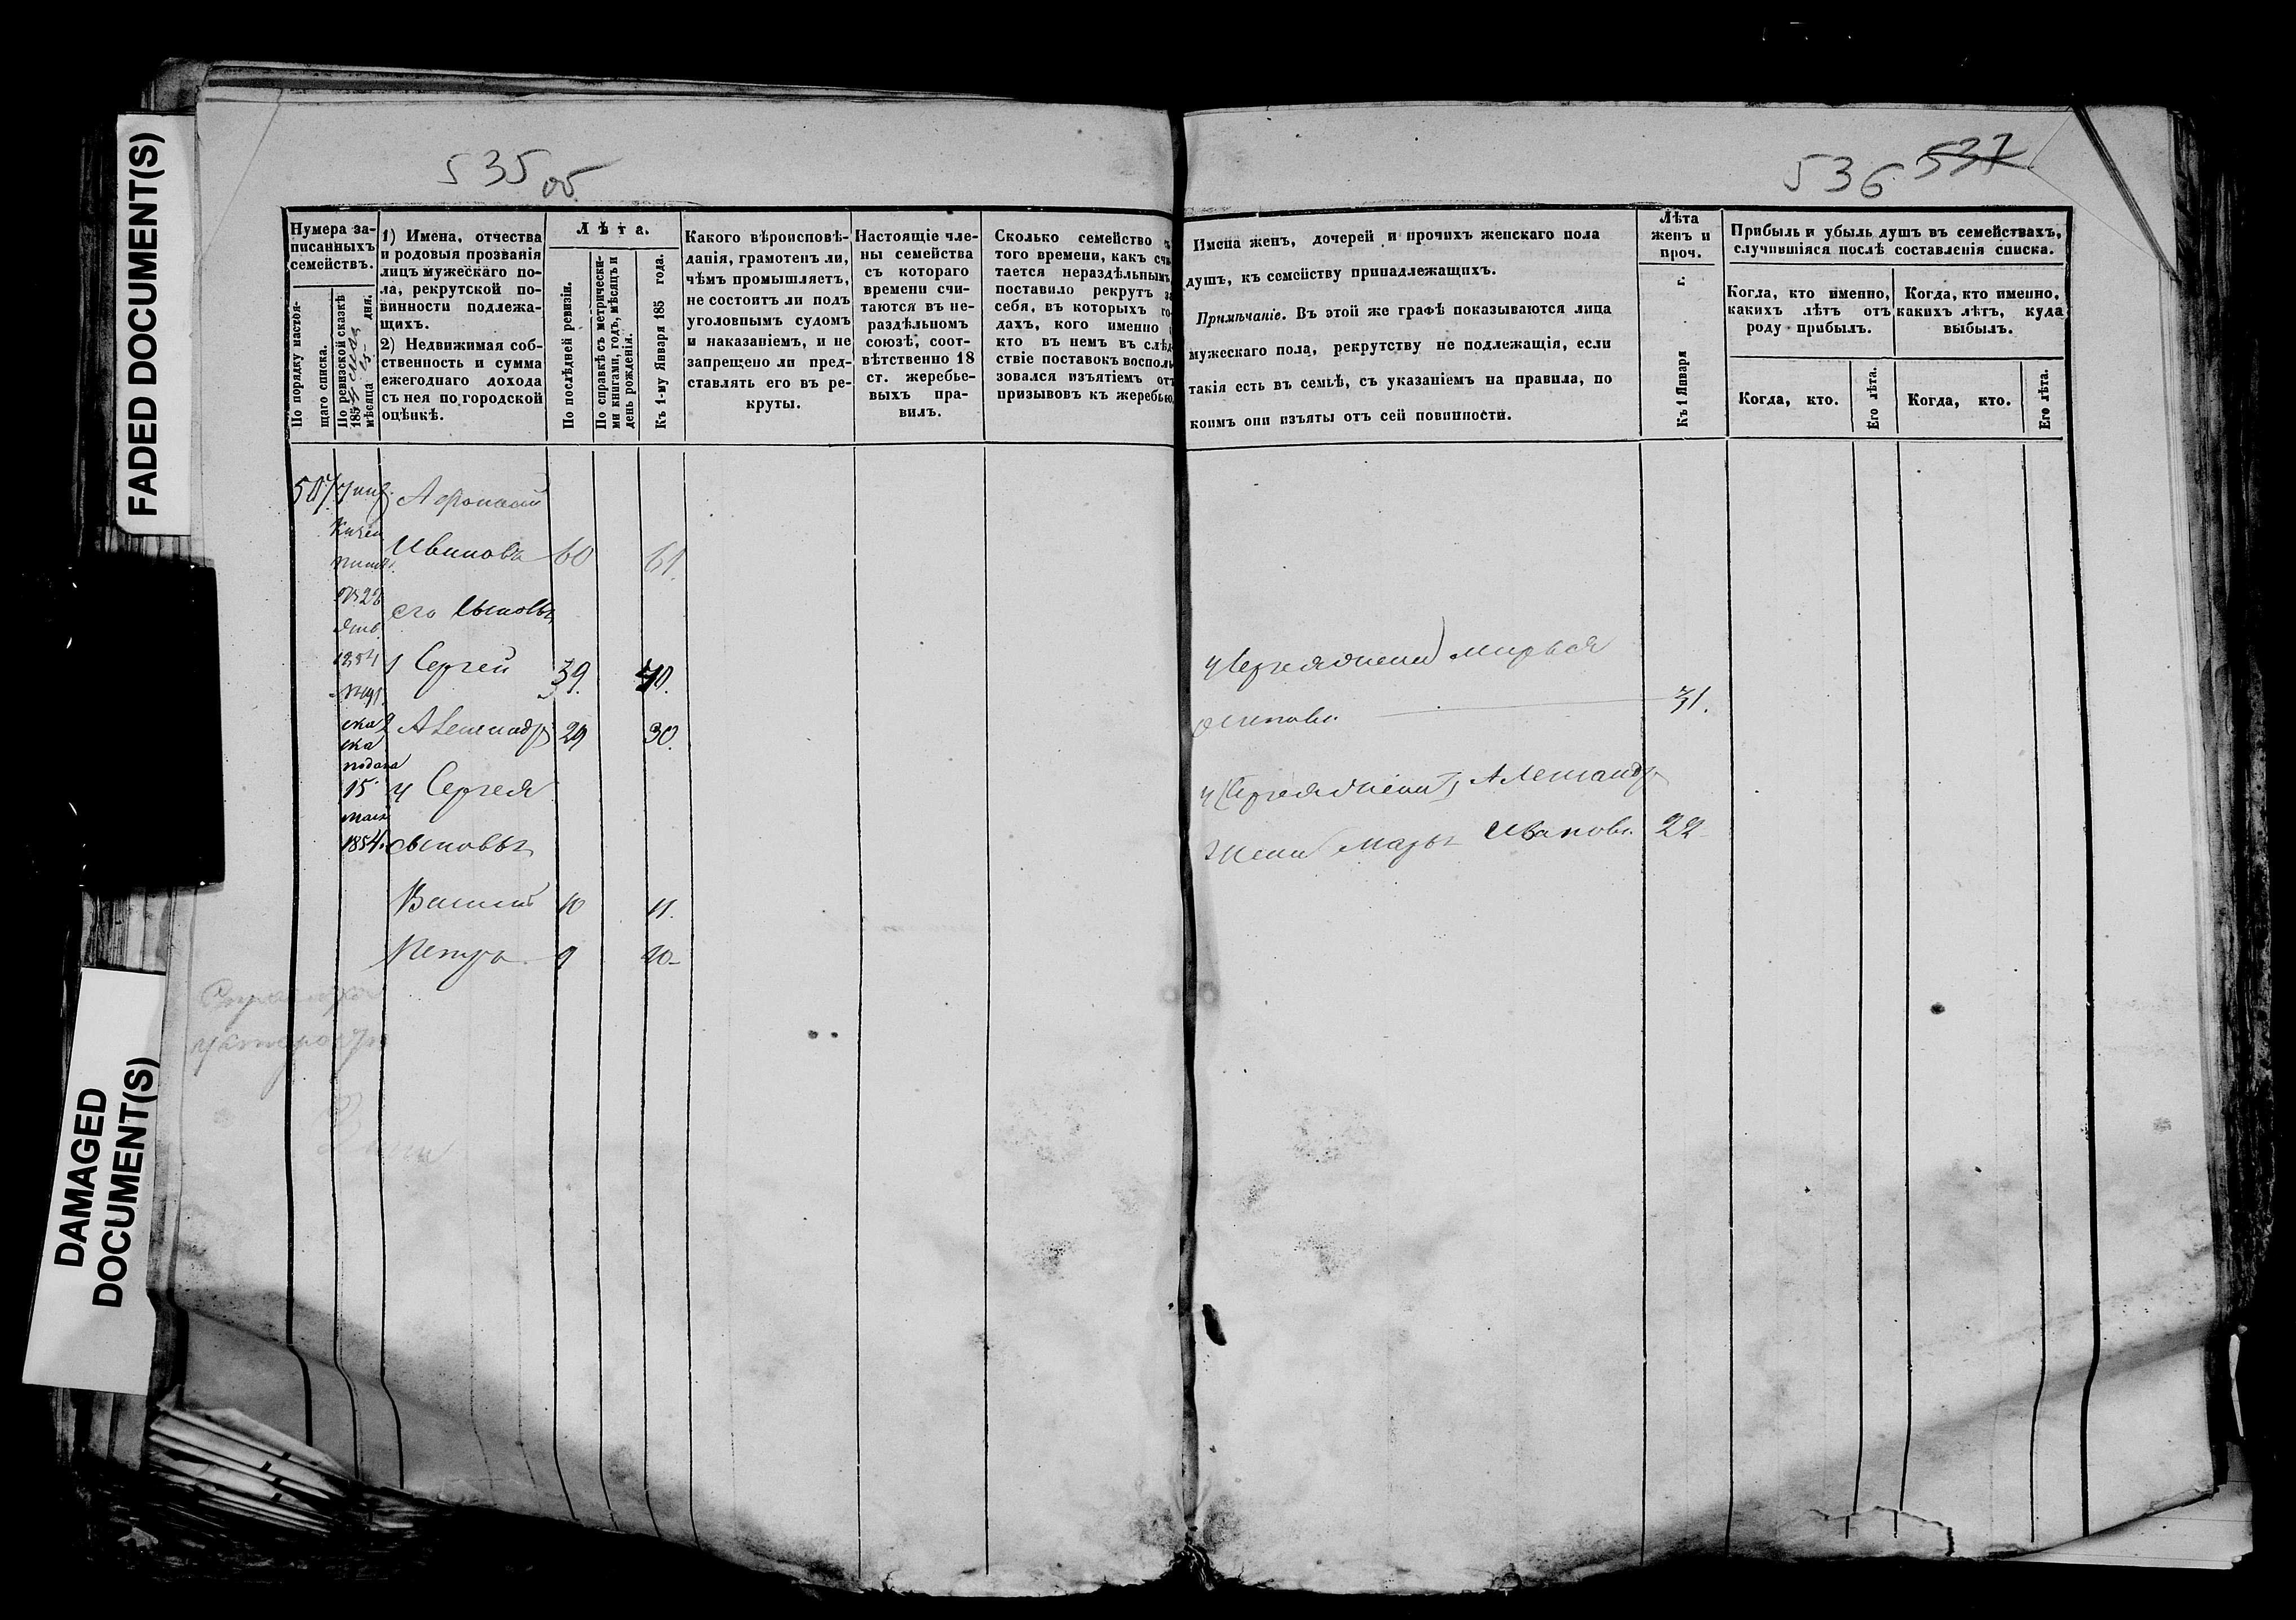 FADED DOCUMENT(S)
DAMAGED
DOCUMENT(S)
535 об
536 537
Нумера за-
писанныхъ
семействъ.
По порядку настоя-
щаго списка.
По ревизской сказкѣ
185 мая
мѣсяца дня.
1) Имена, отчества
и родовыя прозванія
лицъ мужескаго по-
ла, рекрутской по-
винности подлежа-
щихъ.
2) Недвижимая соб-
ственность и сумма
ежегоднаго дохода
съ нея по городской
оцѣнкѣ.
Лѣта.
По послѣдней ревизіи.
По справкѣ съ метрически-
ми книгами, годъ, мѣсяцъ и
день рожденія.
Къ 1-му Января 185 года.
Какого вѣроисповѣ-
данія, грамотенъ ли,
чѣмъ промышляетъ,
не состоитъ ли подъ
уголовнымъ судомъ
и наказаніемъ, и не
запрещено ли пред-
ставлять его въ ре-
круты.
Настоящіе чле-
ны семейства
съ котораго
времени счи-
таются въ не-
раздѣльномъ
союзѣ, соот-
вѣтственно 18
ст. жеребье-
выхъ пра-
вилъ.
Сколько семейство съ
того времени, какъ счи-
тается нераздѣльнымъ,
поставило рекрутъ за
себя, въ которыхъ го-
дахъ, кого именно и
кто въ немъ въ слѣд-
ствіе поставокъ восполь-
зовался изъятіемъ отъ
призывовъ къ жеребью.
Имена женъ, дочерей и прочихъ женскаго пола
душъ, къ семейству принадлежащихъ.
Примѣчаніе. Въ этой же графѣ показываются лица
мужескаго пола, рекрутству не подлежащія, если
такія есть въ семьѣ, съ указаніемъ на правила, по
коимъ они изъяты отъ сей повинности.
Лѣта
женъ и
проч.
Къ 1 Января г.
Прибыль и убыль душъ въ семействахъ,
случившіяся послѣ составленія списка.
Когда, кто именно,
какихъ лѣтъ отъ
роду прибылъ.
Когда, кто именно,
какихъ лѣтъ, куда
выбылъ.
Когда, кто.
Его лѣта.
Когда, кто.
Его лѣта.
507 Афонасій
Ивановъ 60 61.
его сыновья
1 Сергей 39. 40.
2 Александръ 29 30.
у Сергея
сыновья
Василій 10 11.
Петръ 9 10
28
Янв.
1854
ска
ска
подана
15
мая
1854.
у Сергея жена Марья
Осипова. 31.
Александр.
жена Марья Иванова. 22